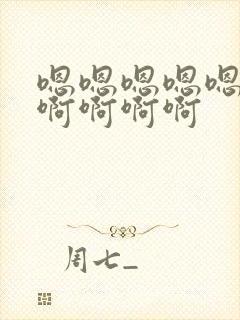 嗯嗯嗯嗯嗯
啊啊啊啊
周七_